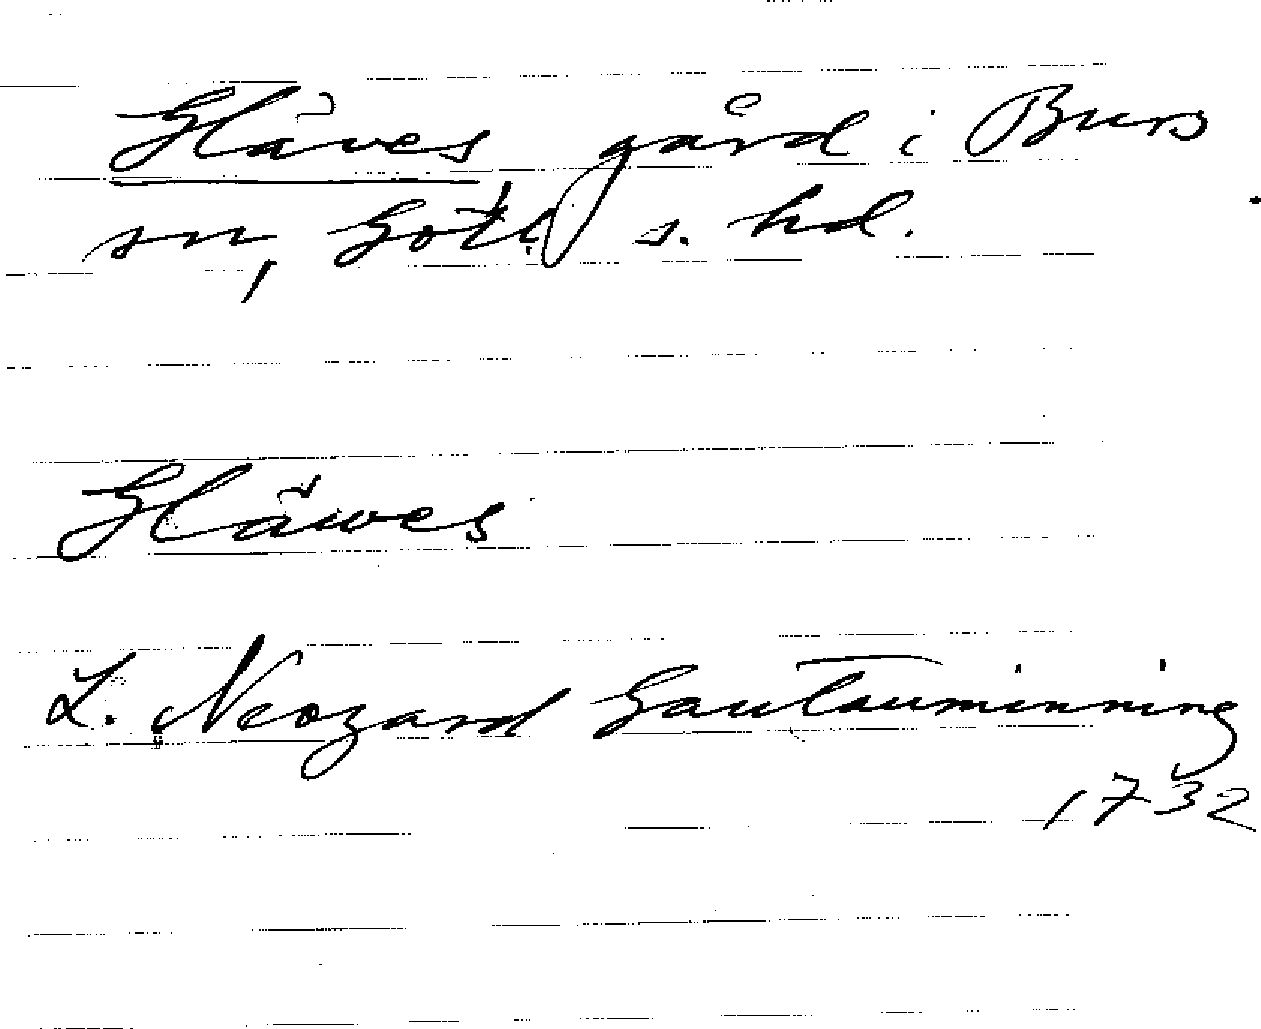 Gläves gård i Burs
sn, Gotl. s. hd.
Gläwes
L. Neogard Gautauminning
1732